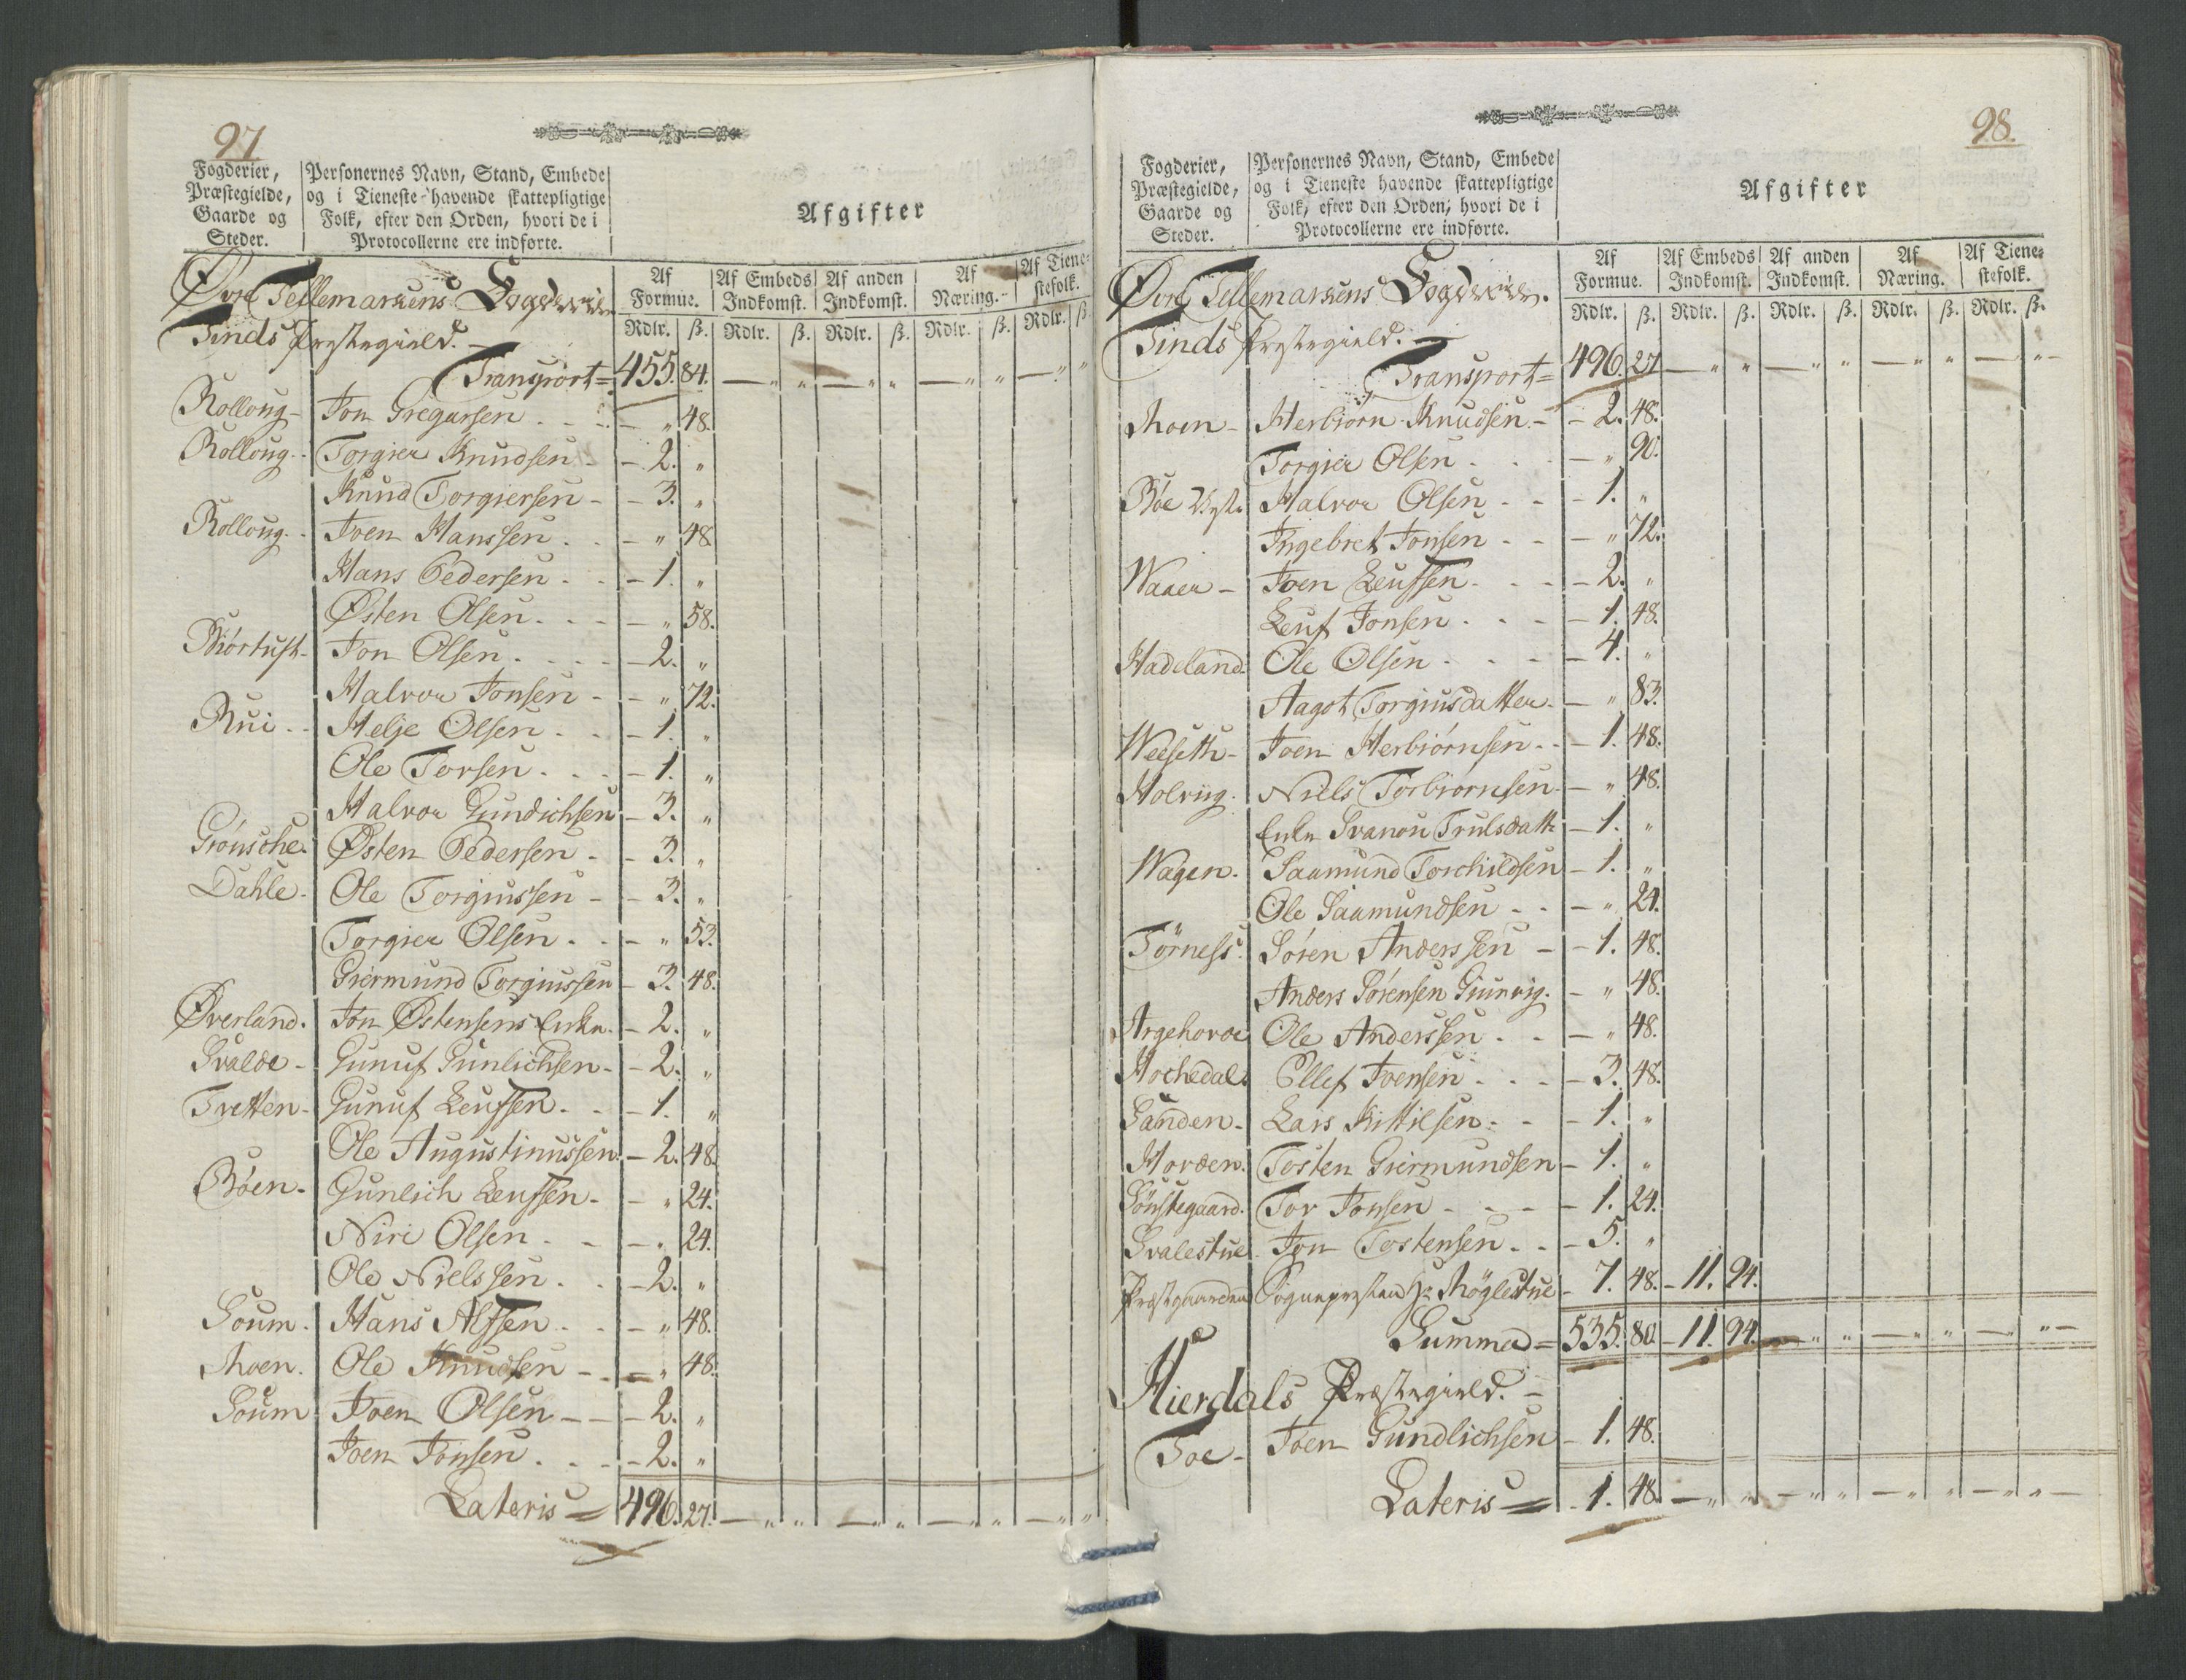 97
Fogderier, Præstegielde, Gaarde og Steder.
Personernes Navn, Stand, Embede og i Tieneste havende skattepligtige Folk, efter den Orden, hvori de i Protocollerne ere indførte.
Afgifter
Af Formue. Af Embeds Indkomst. Af anden Indkomst. Af Næring. Af Tienestefolk.
Rdlr. ß. Rdlr. ß. Rdlr. ß. Rdlr. ß. Rdlr. ß.
Øvre Tellemarkens Fogderie
Tinds Præstegield.
Transport = 455. 84. — " " — " " — " " — " "
Rolloug - Jon Gregarsen - " 48.
Rolloug - Torgier Knudsen - 2. "
Knud Torgiersen - 3. "
Rolloug - Joen Hanssen - " 48
Hans Pedersen - 1. "
Østen Olsen - " 58.
Biørtuft - Jon Olsen - 2. "
Halvor Jonsen - " 72.
Rui - Helje Olsen - 1. "
Ole Torsen - 1. "
Halvor Gundichsen - 3. "
Grønsche. Østen Pedersen - 3. "
Dahle - Ole Torgiussen - 3. "
Torgier Olsen - " 53.
Giermund Torgiussen - 3. 48.
Øverland. Jon Østensens Enke - 2. "
Svalde - Gunuf Gunlichsen - 2. "
Tvetten - Gunuf Leufsen - 1. "
Ole Augustinussen - 2. 48.
Bøen - Gunlich Leufsen - " 24.
Niri Olsen - " 24.
Ole Nielssen - 2. "
Soum. Hans Alfsen - " 48.
Moen. Ole Knudsen - " 48.
Soum Joen Olsen - 2. "
Joen Jonsen - 2. "
Lateris = 496. 27. — " " — " " — " " — " "
98.
Fogderier, Præstegielde, Gaarde og Steder.
Personernes Navn, Stand, Embede og i Tieneste havende skattepligtige Folk, efter den Orden, hvori de i Protocollerne ere indførte.
Afgifter
Af Formue. Af Embeds Indkomst. Af anden Indkomst. Af Næring. Af Tienestefolk.
Rdlr. ß. Rdlr. ß. Rdlr. ß. Rdlr. ß. Rdlr. ß.
Øvre Tellemarkens Fogderie.
Tinds Præstegield.
Transport = 496. 27 — " " — " " — " " — " —
Moen - Herbiørn Knudsen - 2. 48.
Torgier Olsen - " 90.
Bøe Halvor Olsen - 1. "
Ingebret Jonsen - " 72.
Waaer - Joen Leufsen - 2. "
Leuf Jonsen - 1. 48.
Hadeland. Ole Olsen - 4. "
Aagot Torgiusdatter - " 83.
Weeseth - Joen Herbiørnsen - 1. 48.
Holviig. Niels Torbiørnsen - " 48.
Enke Svanou Trulsdatt: - 1. "
Wagen. Saamund Torchildsen - 1. "
Ole Saamundsen - " 24.
Törness. Søren Anderssen - 1. 48.
Anders Sørensen Giunvig. - " 48.
Argehovde Ole Anderssen - " 48.
Hochedal. Ellef Joensen - 3. 48.
Sanden - Lars Kittilsen - 1. "
Horden. Tosten Giermundsen - 1. "
Sønstegaard. Tor Jonsen - 1. 24.
Svalestue. Jon Tostensen - 5. "
Præstgaarden Sognepresten Hr Møglestue - 7. 48. - 11. 94.
Summa = 535. 80. - 11. 94. — " " — " " — " —
Hierdals Præstegield. -
Toe - Joen Gundlichsen - 1. 48.
Lateris = - 1. 48. — " " — " " — " " — " " —